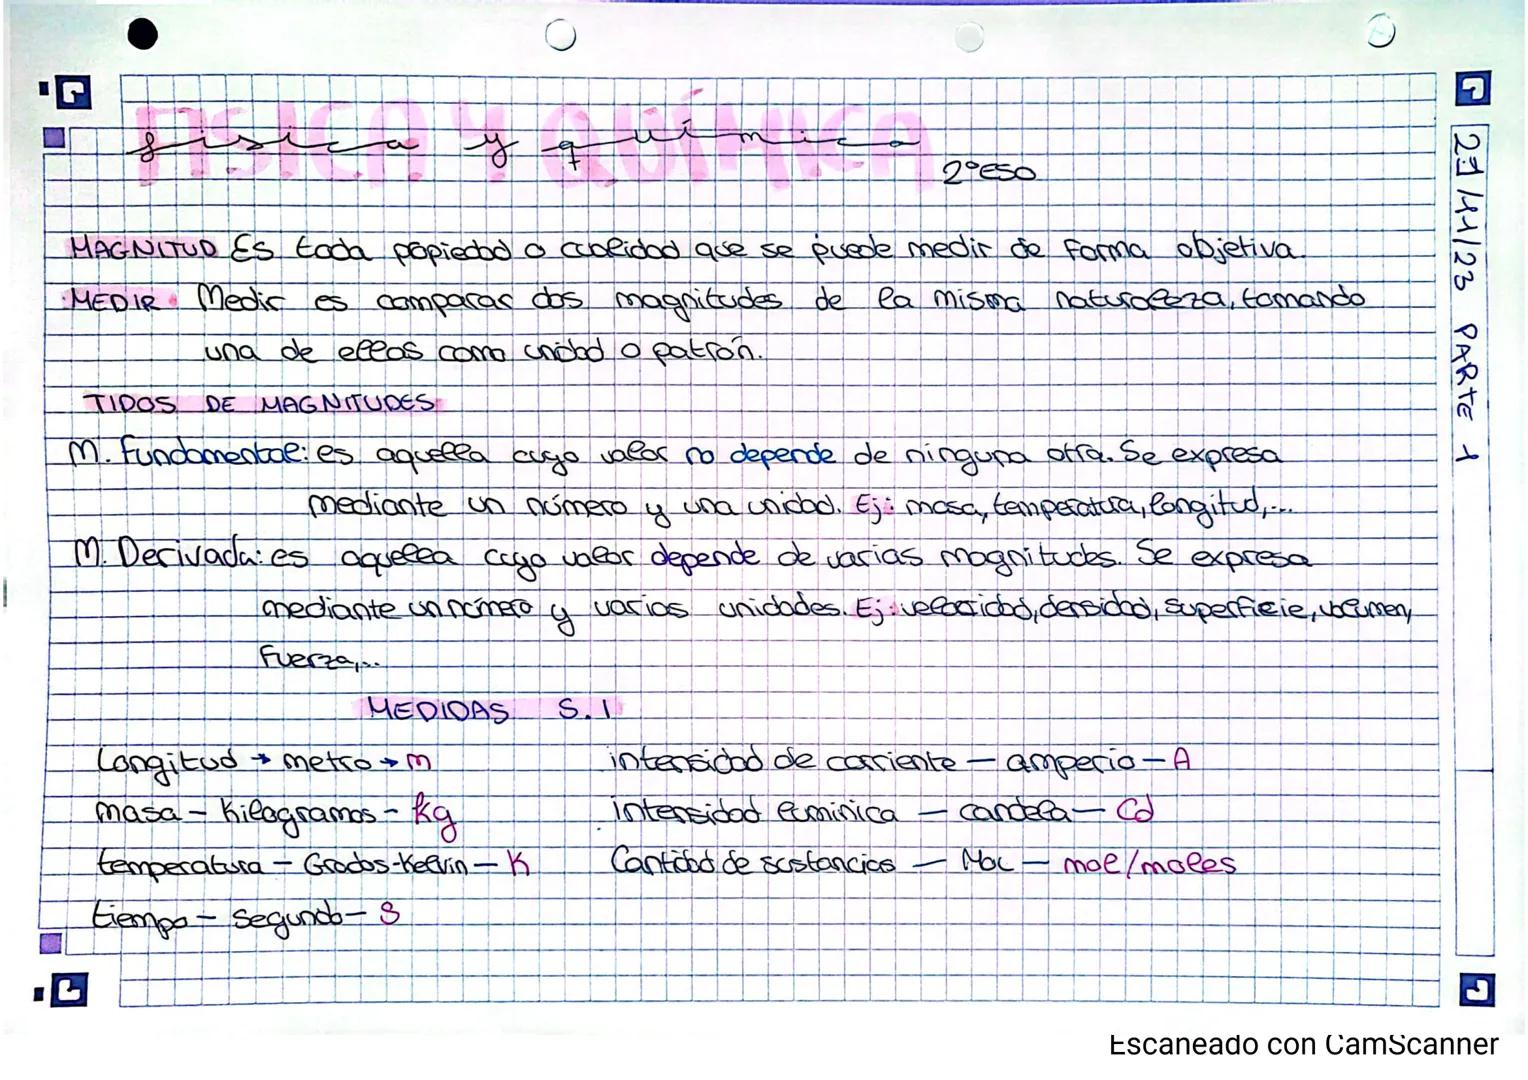 FISICA Y QUÍMICA
física y química
2ºESO
MAGNITUD Es toda popiedad o cualidad que se puede medir de forma objetiva.
MEDIR Medir es comparar dos magnitudes de la misma naturaleza, tomando
una de ellas como unidad o patrón.
TIPOS DE MAGNITUDES
M. Fundamental: es aquella cuyo valor no depende de ninguna otra. Se expresa
mediante un número y una unidad. Ej: masa, temperatura, longitud,...
M. Derivada: es aquella cuyo valor depende de varias magnitudes. Se expresa
mediante un número y varias unidades. Ej: velocidad, densidad, superficie, volumen,
Fuerza,...
MEDIDAS S.I
Longitud → metro → m
masa - Kilogramos - kg
temperatura - Grados-Kelvin - K
tiempo - segundo - s
intensidad de corriente - amperio - A
intensidad luminica - candela - Cd
Cantidad de sustancias - Mol - mol/moles
27/11/23 PARTE 1
Escaneado con CamScanner